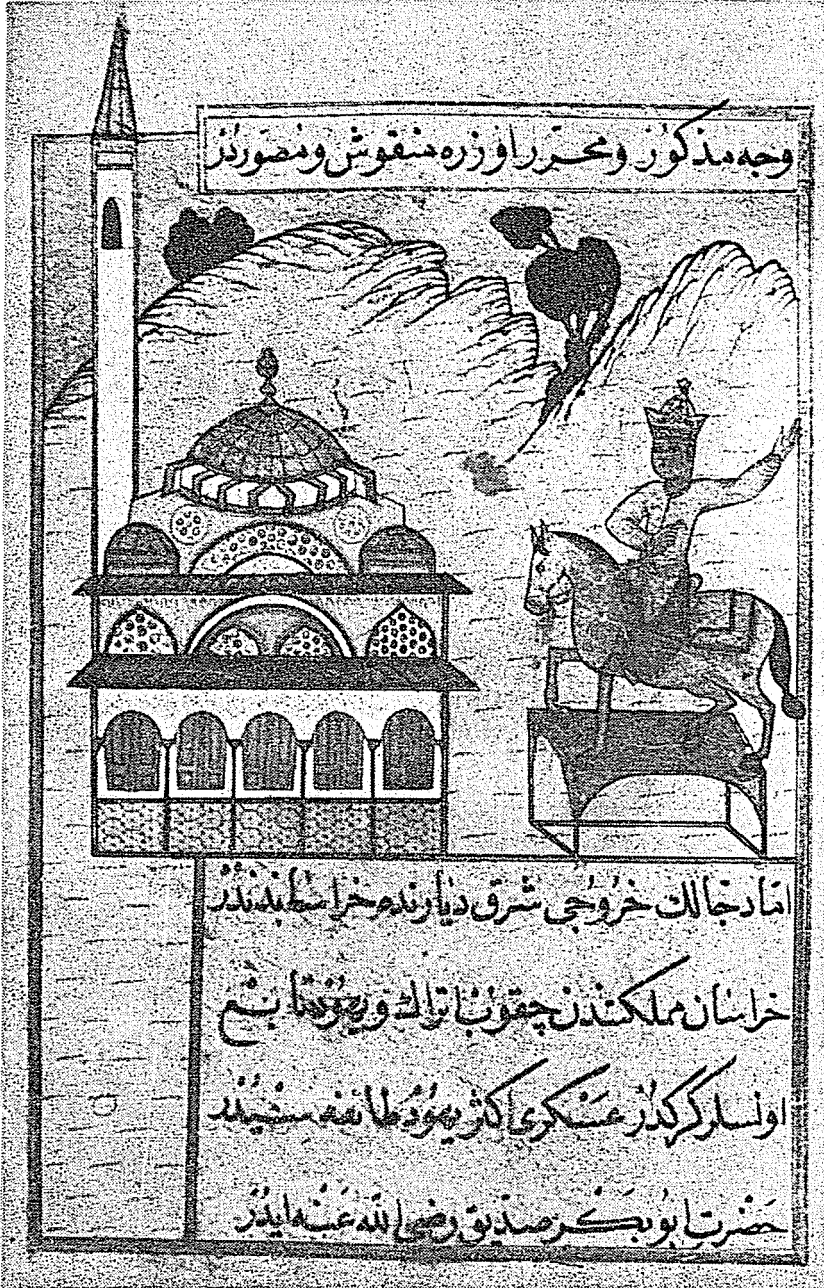 وجه مذكور و محرر اوزره منقوش و مصوردر
اما دجالك خروجى شرق ديارنده خراساندندر
خراسان مملكتندن چقوب اتراك و يهود تابع
اولسلر كركدر عسكرى اكثر يهود طائفه سيدر
حضرت ابو بكر صديق رضى الله عنه ايدر